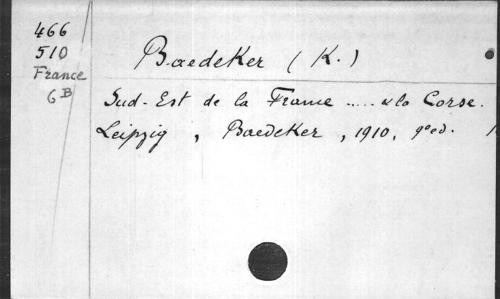 466
510
France
6B
Baedeker (K.)
Sud-Est de la France ..... & la Corse.
Leipzig, Baedeker, 1910, 9e ed.